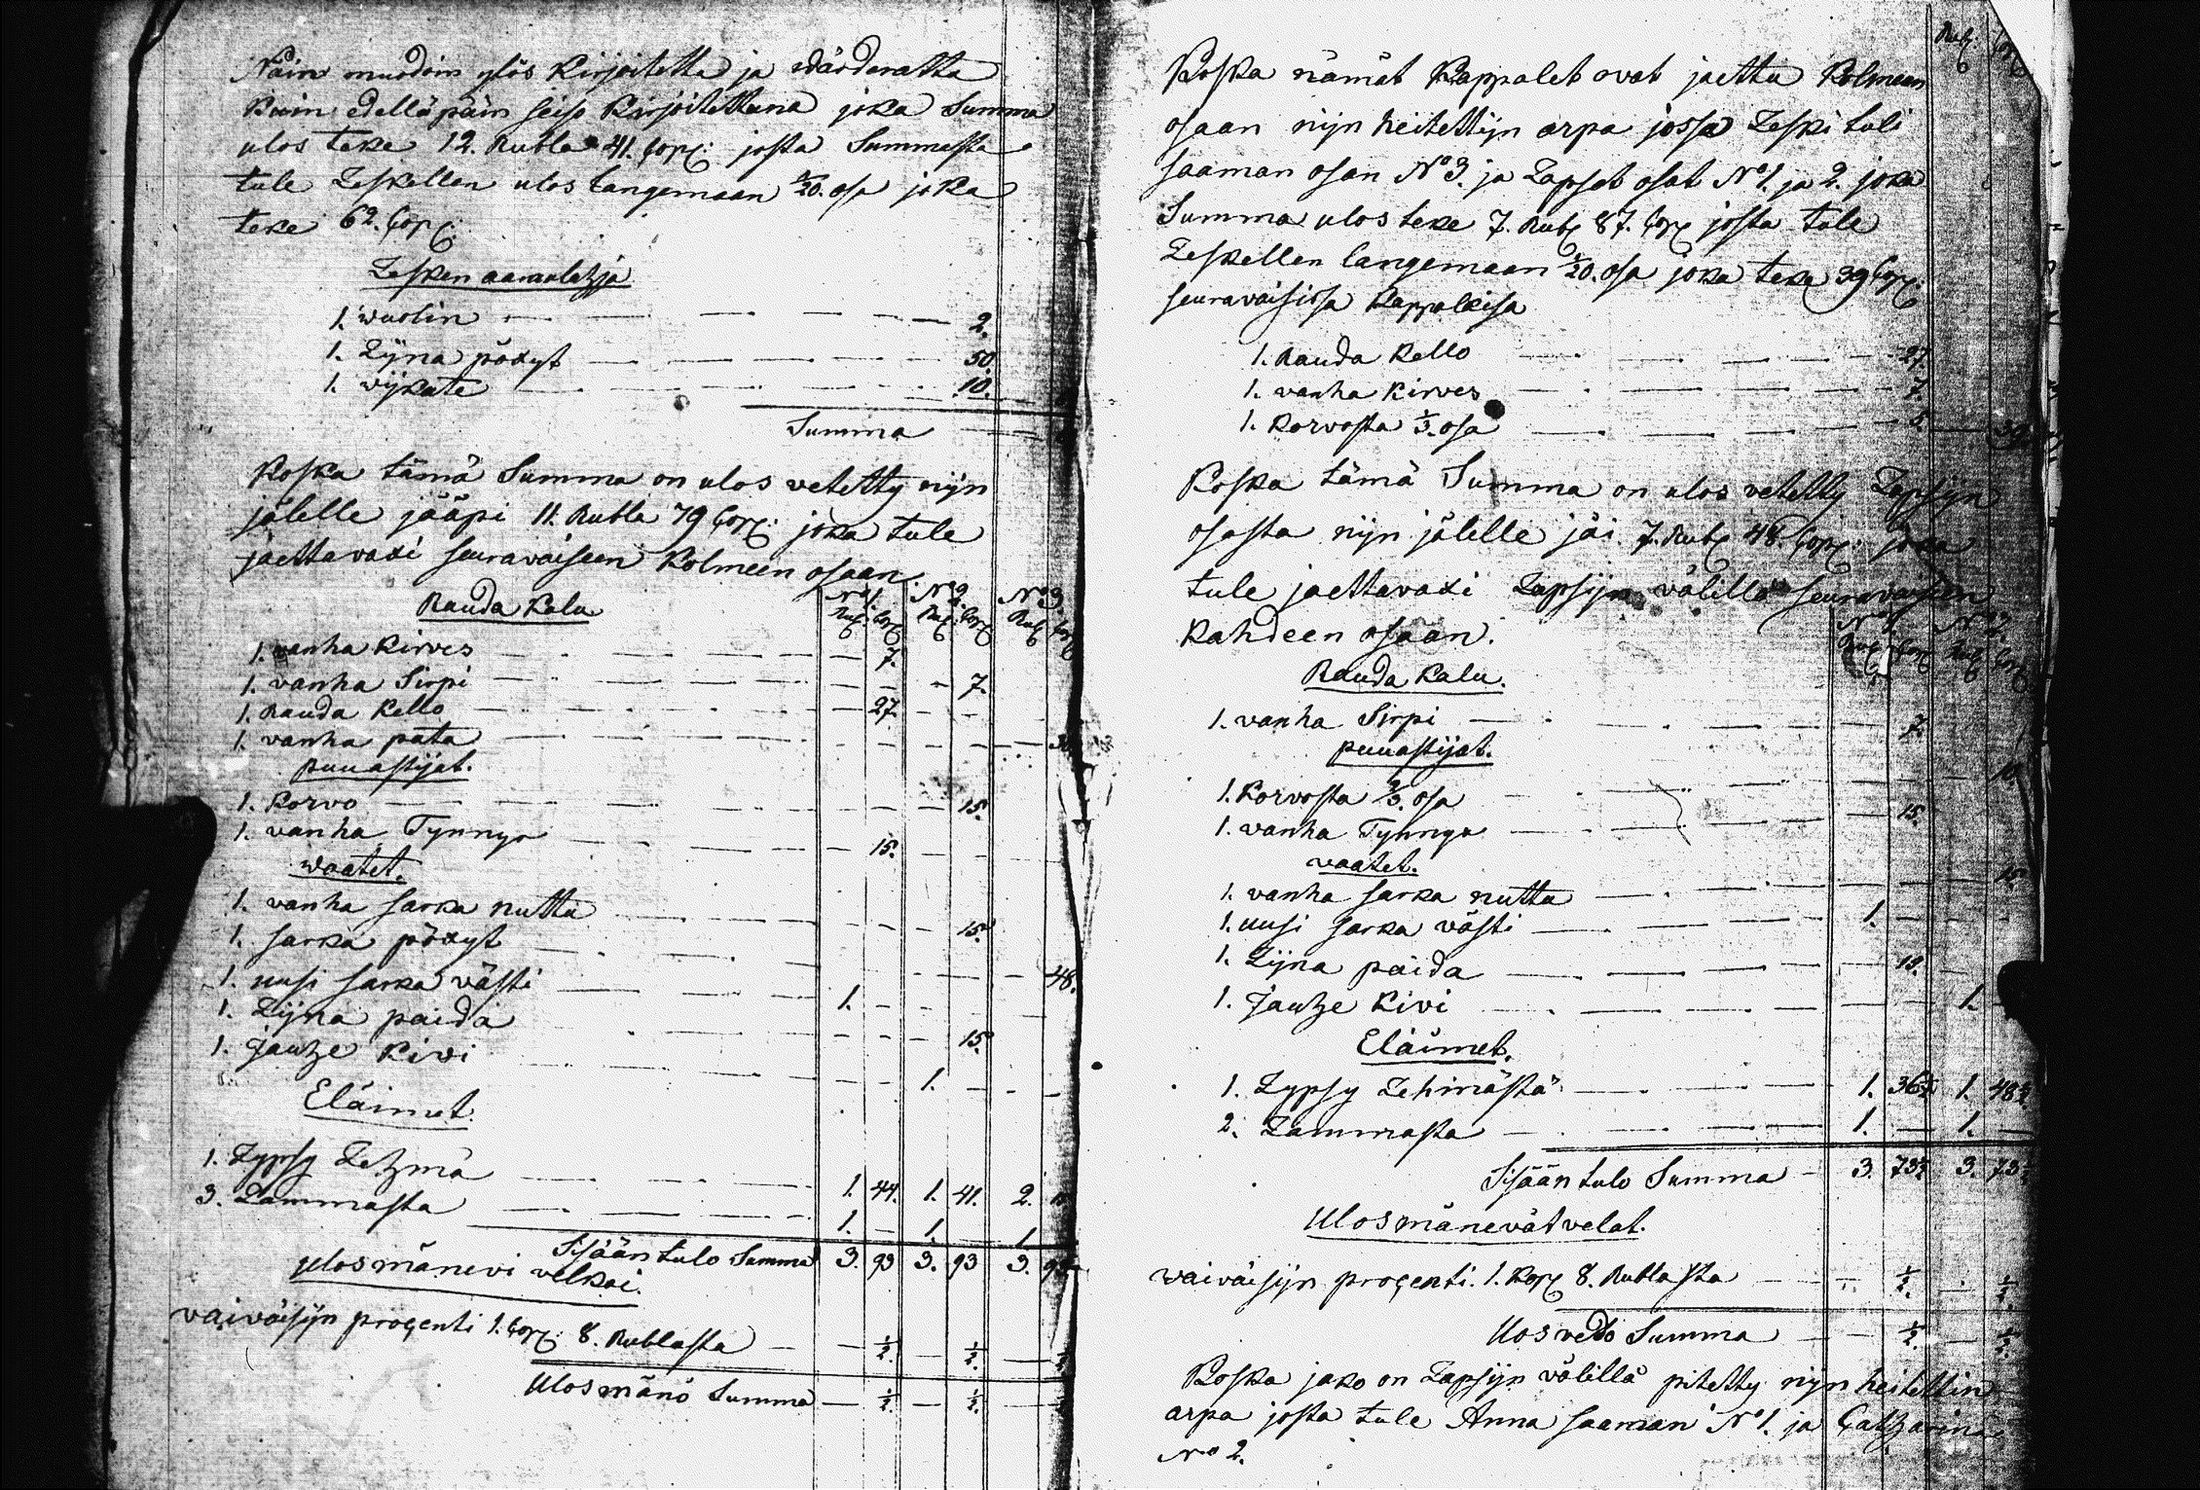 Näin muodoin ylös Kirjoitettu ja wärderattu
kuin edelläpäin seiso Kirjoitettuna joka Summa
ulos teke 12. Rubla 41. Cop: josta Summasta
tule Leskellen ulos langemaan 1/20. osa joka
teke 62. Cop:
Lesken aamulahja
1. wuolin 2.
1. Lijna pöxyt 50.
1. wijkate 10.
Summa
Koska tämä Summa on ulos vetetty nijn
jälelle jääpi 11. Rubla 79 Cop: joka tule
jaettavaxi seuravaiseen Kolmeen osaan.
Rauda Kalu No 1. No 2. No 3.
Rub: Cop: Rub: Cop: Rub: Cop:
1. vanha Kirves 7.
1. vanha Sirpi 7.
1. Rauda Kello 27.
1. vanha pata
puuastijat.
1. Korvo 15.
1. vanha Tynnyr 15.
waatet.
1. vanha sarka nuttu 15.
1. sarka pöxyt 48.
1. uusi sarka västi 1.
1. Lijna paida 15.
1. jauhe Kivi 1.
Eläimet.
1. Lypsy Lehmä 1. 44. 1. 41. 2.
3. Lammasta 1. 1. 1.
Sisään tulo Summa 3. 93 3. 93 3.
Ulosmänevi velkoi.
vaiväisijn proçenti 1. Cop: 8. Rublasta 1/2. 1/2. 1/2
Ulosmänö Summa 1/2. 1/2.
Rub: Cop:
Koska nämät Kappalet ovat jaettu Kolmeen
osaan nijn heitettijn arpa jossa Leski tuli
saaman osan No 3. ja Lapset osat No 1. ja 2. joka
Summa ulos teke 7. Rub: 87. Cop: josta tule
Leskellen langemaan 1/20. osa joka teke 39 Cop:
seuravaisissa Kappaleisa
1. Rauda Kello 27.
1. vanha Kirves 7.
1. Korvosta 1/3. osa 5. 39.
Koska tämä Summa on ulos vetetty Lapsijn
osasta nijn jälelle jäi 7. Rub: 48. Cop: joka
tule jaettavaxi Lapsijn välillä seuravaiseen
Kahdeen osaan. No 1. No 2.
Rub: Cop: Rub: Cop:
Rauda Kalu.
1. vanha Sirpi 7.
puuastijat.
1. Korvosta 2/3. osa 10.
1. vanha Tynnyr 15.
vaatet.
1. vanha sarka nuttu 15.
1. uusi sarka västi 1.
1. Lijna paida 15.
1. jauhe Kivi 1.
Eläimet.
1. Lypsy Lehmästä 1. 36 1/2 1. 48 1/2
2. Lammasta 1. 1.
Sisään tulo Summa 3. 73 1/2 3. 73 1/2
Ulosmänevät velat.
waiväisijn proçenti. 1. Kop: 8. Rublasta 1/2. 1/2.
Uos vedo Summa 1/2. 1/2.
Koska jako on Lapsijn välillä pitetty nijn heitettin
arpa josta tule Anna saaman No 1. ja Catharina
No 2.